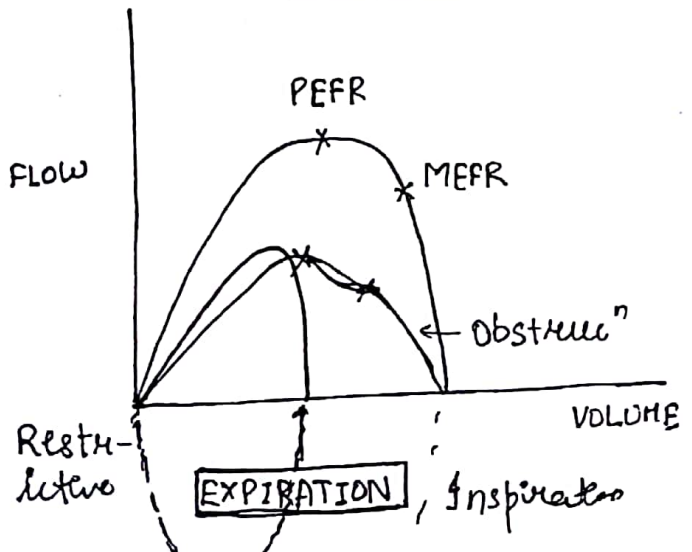 PEFR
FLOW
MEFR
Obstrucⁿ
VOLUME
Restr-
ictive
EXPIRATION, Inspiration